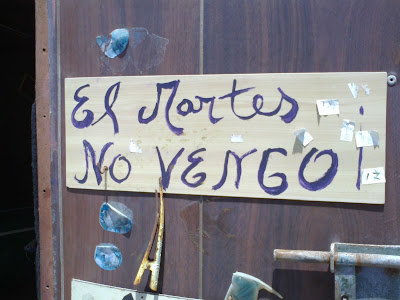 El Martes
NO VENGO¡